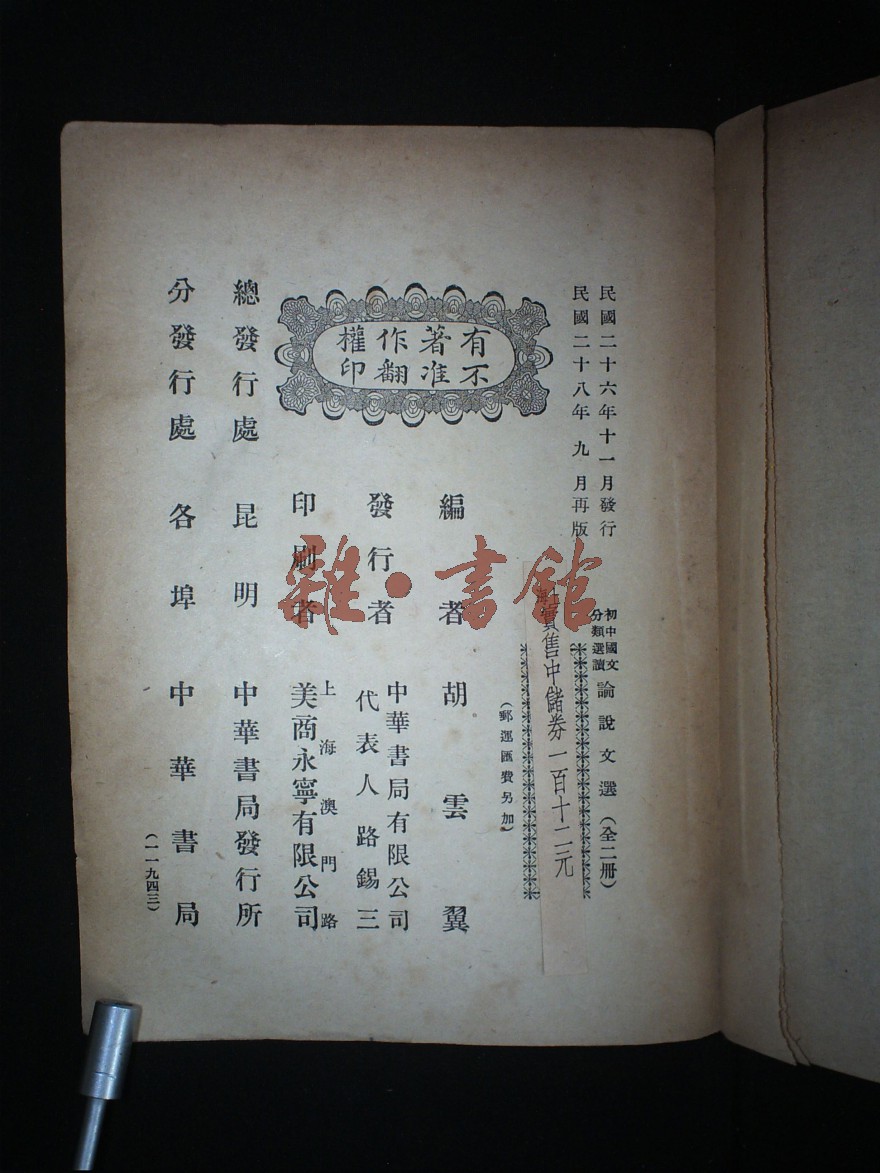 民國二十六年十一月發行
民國二十八年九月再版
初中國文
分類選讀
論說文選（全二冊）
實售中儲券一百十二元
（郵運匯費另加）
有著作權
不准翻印
編者 胡雲翼
發行者 中華書局有限公司
代表人路錫三
印刷者 上海澳門路
美商永寧有限公司
總發行處 昆明 中華書局發行所
分發行處 各埠 中華書局
（一一九四三）
雜·書館